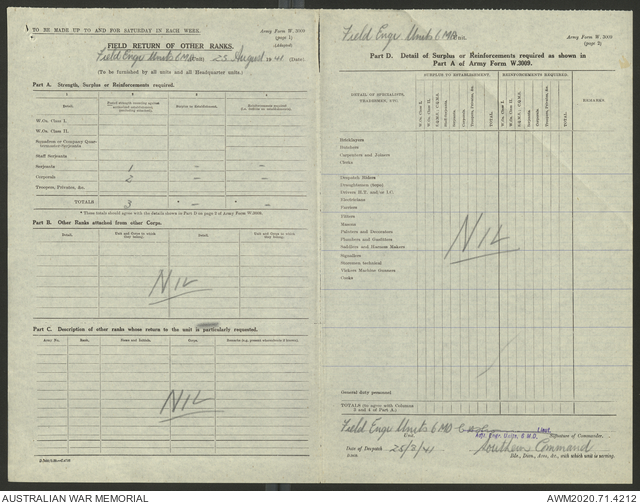 TO BE MADE UP TO AND FOR SATURDAY IN EACH WEEK.
Army Form W. 3009
(page 1)
(Adapted)
FIELD RETURN OF OTHER RANKS.
Field Engr Units 6 MD (Unit) 25 August 1941 (Date)
(To be furnished by all units and all Headquarter units.)
Part A. Strength, Surplus or Reinforcements required.
1 2 3 4
Detail.
W.Os. Class I.
W.Os. Class II.
Squadron or Company Quar-
termaster-Serjeants
Staff Serjeants
Serjeants 1 — —
Corporals 2 — —
Troopers, Privates, &c.
TOTALS 3 * — * —
* These totals should agree with the details shown in Part D on page 2 of Army Form W.3009.
Part B. Other Ranks attached from other Corps.
Detail. Unit and Corps to which they belong. Detail. Unit and Corps to which they belong.
NIL
Part C. Description of other ranks whose return to the unit is particularly requested.
Army No. Rank. Name and Initials. Corps.
NIL
Field Engr Units 6 MD
Army Form W. 3009
(page 2)
Part D. Detail of Surplus or Reinforcements required as shown in
Part A of Army Form W.3009.
DETAIL OF SPECIALISTS, TRADESMEN, ETC.
SURPLUS TO ESTABLISHMENT.
REINFORCEMENTS REQUIRED.
REMARKS.
W.Os. Class I. W.Os. Class II. Staff-Serjeants. Serjeants. Corporals. Troopers, Privates, &c. TOTAL.
Bricklayers
Butchers
Carpenters and Joiners
Clerks
Despatch Riders
Draughtsmen
Electricians
Farriers
Fitters
Masons
Painters and Decorators
Plumbers and Gasfitters
Saddlers and Harness Makers
Signallers
Storemen technical
Vickers Machine Gunners
Cooks
NIL
General duty personnel
TOTALS (to agree with Columns
3 and 4 of Part A.)
Field Engr Units 6 MD
Unit.
Lieut
Adj. Engr. Units, 6 M.D.
Signature of Commander.
Date of Despatch 25/8/41
Southern Command
Bde., Divn., Area, &c., with which unit is serving.
AUSTRALIAN WAR MEMORIAL
AWM2020.71.4212